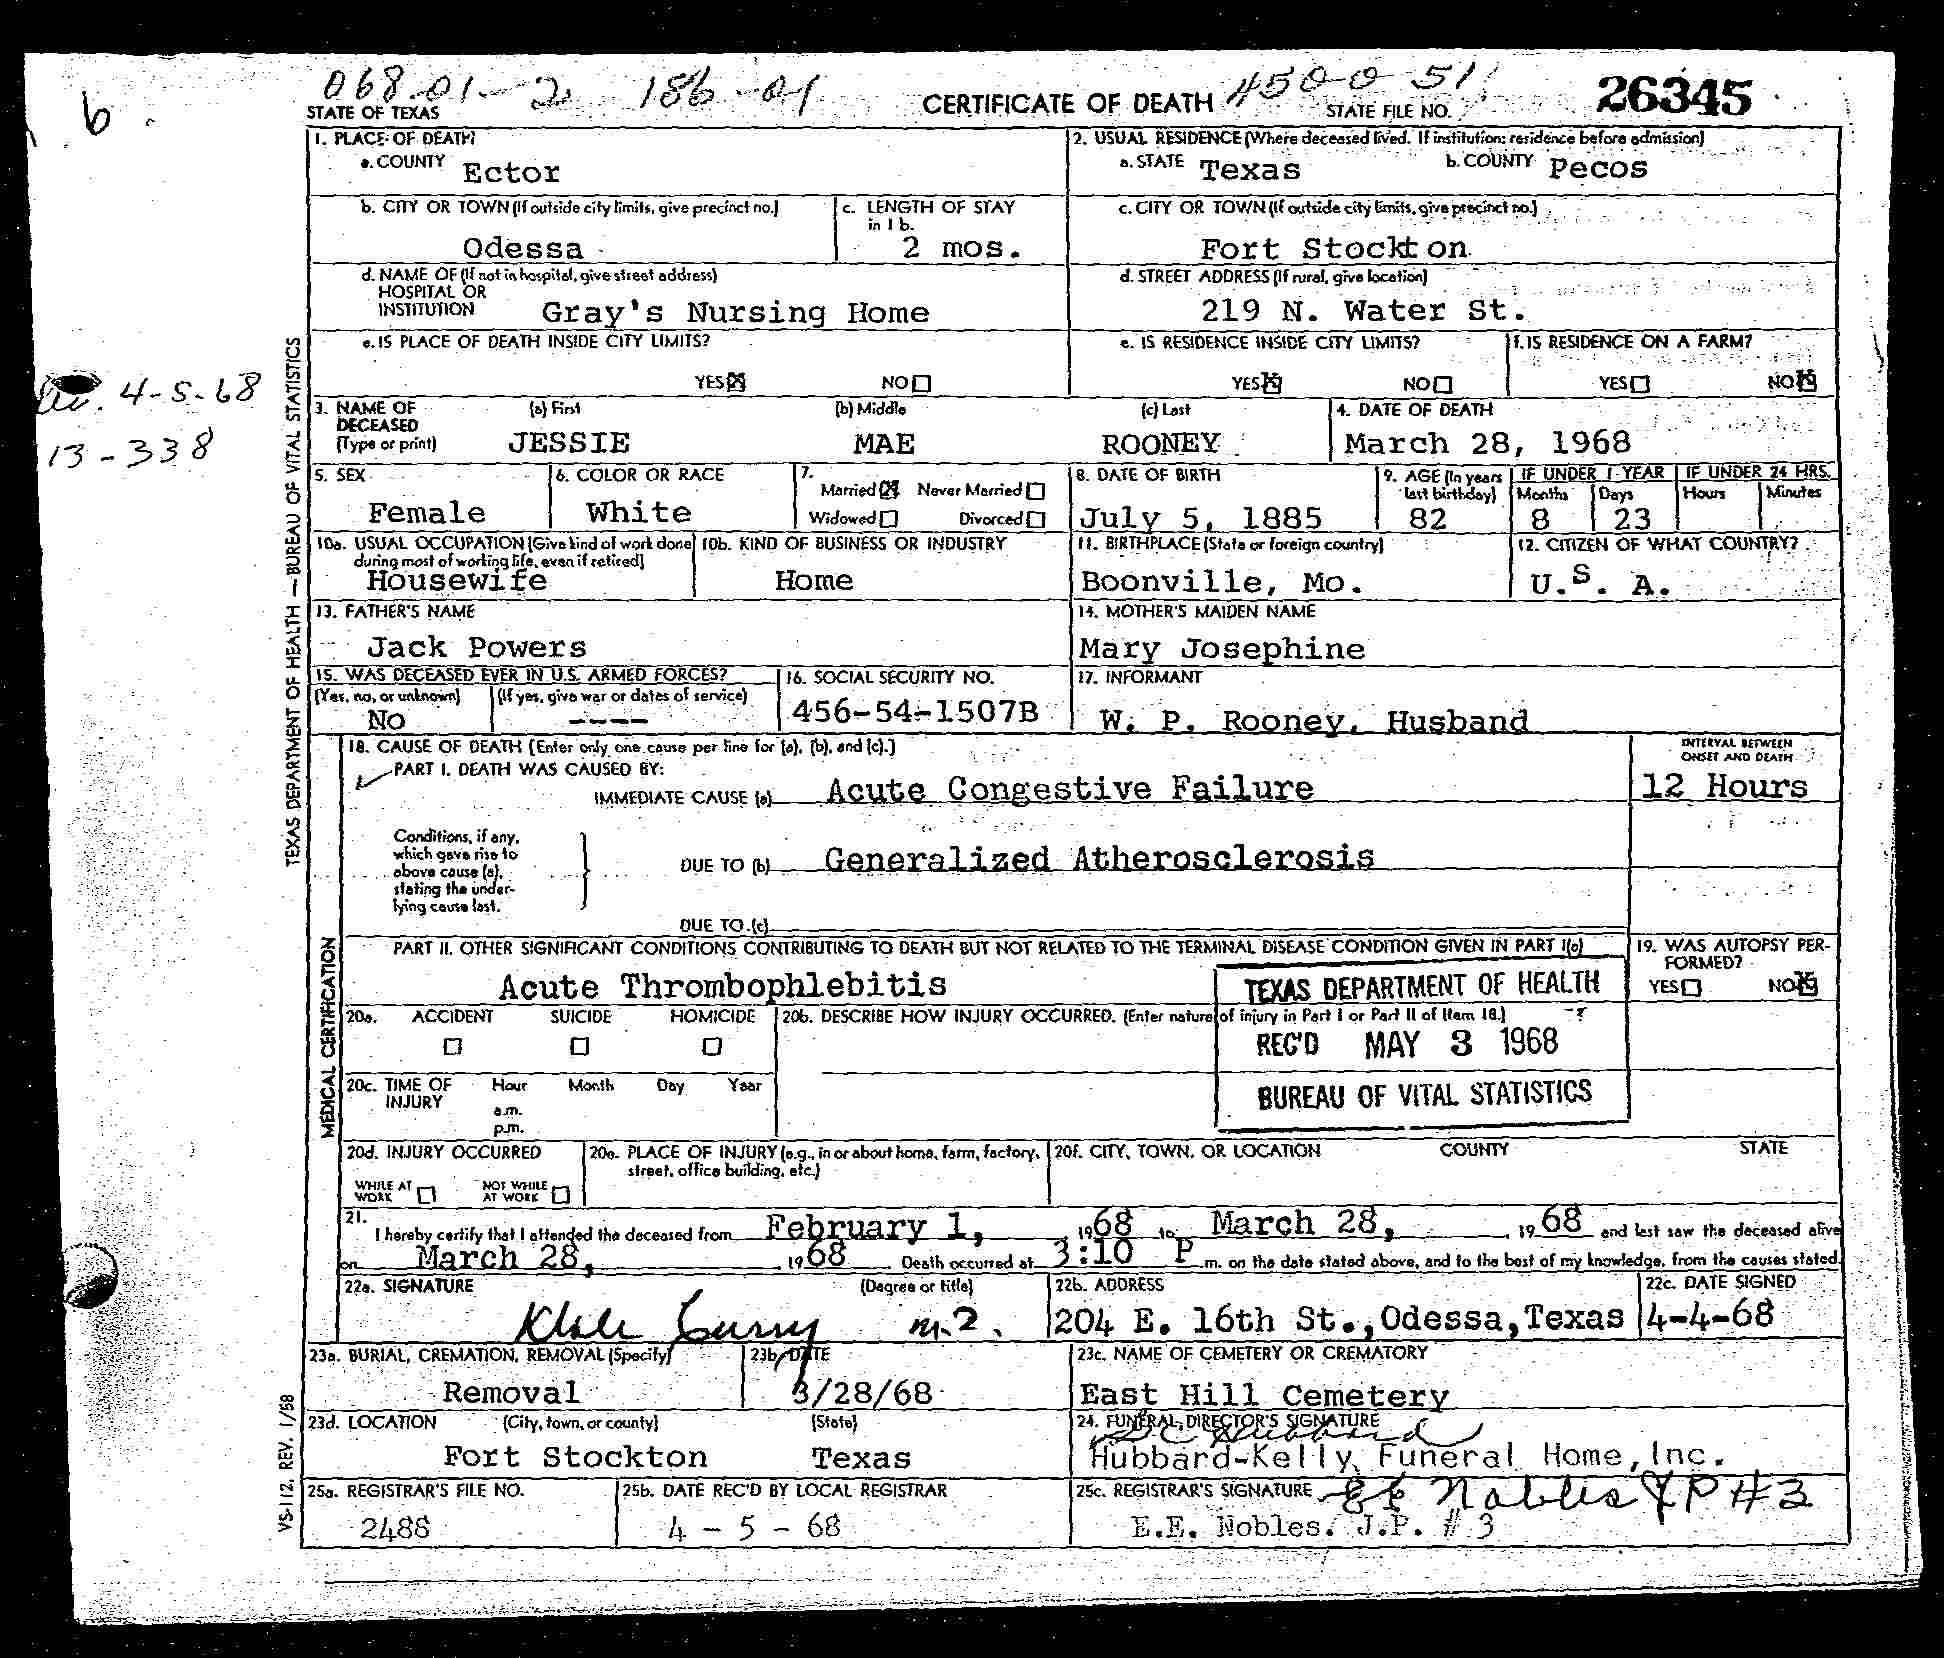 068-01-2 186-01 4500 51
b
STATE OF TEXAS CERTIFICATE OF DEATH STATE FILE NO. 26345
1. PLACE OF DEATH
a. COUNTY Ector
2. USUAL RESIDENCE (Where deceased lived. If institution: residence before admission)
a. STATE Texas b. COUNTY Pecos
b. CITY OR TOWN (If outside city limits, give precinct no.)
Odessa
c. LENGTH OF STAY in 1 b.
2 mos.
c. CITY OR TOWN (If outside city limits, give precinct no.)
Fort Stockton
d. NAME OF (If not in hospital, give street address)
HOSPITAL OR
INSTITUTION Gray's Nursing Home
d. STREET ADDRESS (If rural, give location)
219 N. Water St.
e. IS PLACE OF DEATH INSIDE CITY LIMITS?
YES NO
e. IS RESIDENCE INSIDE CITY LIMITS?
YES NO
f. IS RESIDENCE ON A FARM?
YES NO
4-5-68
13-338
TEXAS DEPARTMENT OF HEALTH — BUREAU OF VITAL STATISTICS
3. NAME OF DECEASED (Type or print)
(a) First (b) Middle (c) Last
JESSIE MAE ROONEY
4. DATE OF DEATH
March 28, 1968
5. SEX
Female
6. COLOR OR RACE
White
7.
Married Never Married
Widowed Divorced
8. DATE OF BIRTH
July 5, 1885
9. AGE (In years last birthday)
82
IF UNDER 1 YEAR
Months Days
8 23
IF UNDER 24 HRS.
Hours Minutes
10a. USUAL OCCUPATION (Give kind of work done during most of working life, even if retired)
Housewife
10b. KIND OF BUSINESS OR INDUSTRY
Home
11. BIRTHPLACE (State or foreign country)
Boonville, Mo.
12. CITIZEN OF WHAT COUNTRY?
U.S. A.
13. FATHER'S NAME
Jack Powers
14. MOTHER'S MAIDEN NAME
Mary Josephine
15. WAS DECEASED EVER IN U.S. ARMED FORCES?
(Yes, no, or unknown) (If yes, give war or dates of service)
No ----
16. SOCIAL SECURITY NO.
456-54-1507B
17. INFORMANT
W. P. Rooney, Husband
MEDICAL CERTIFICATION
18. CAUSE OF DEATH (Enter only one cause per line for (a), (b), and (c).)
PART I. DEATH WAS CAUSED BY:
IMMEDIATE CAUSE (a) Acute Congestive Failure
INTERVAL BETWEEN ONSET AND DEATH
12 Hours
Conditions, if any,
which gave rise to
above cause (a),
stating the under-
lying cause last.
DUE TO (b) Generalized Atherosclerosis
DUE TO (c)
PART II. OTHER SIGNIFICANT CONDITIONS CONTRIBUTING TO DEATH BUT NOT RELATED TO THE TERMINAL DISEASE CONDITION GIVEN IN PART I(a)
Acute Thrombophlebitis
19. WAS AUTOPSY PER-
FORMED?
YES NO
TEXAS DEPARTMENT OF HEALTH
REC'D MAY 3 1968
BUREAU OF VITAL STATISTICS
20a. ACCIDENT SUICIDE HOMICIDE
20b. DESCRIBE HOW INJURY OCCURRED. (Enter nature of injury in Part I or Part II of Item 18.)
20c. TIME OF INJURY
Hour Month Day Year
a.m.
p.m.
20d. INJURY OCCURRED
WHILE AT WORK NOT WHILE AT WORK
20e. PLACE OF INJURY (e.g., in or about home, farm, factory, street, office building, etc.)
20f. CITY, TOWN, OR LOCATION COUNTY STATE
21.
I hereby certify that I attended the deceased from February 1, 1968 to March 28, 1968 and last saw the deceased alive
on March 28, 1968 Death occurred at 3:10 P m. on the date stated above, and to the best of my knowledge, from the causes stated.
22a. SIGNATURE (Degree or title)
Curry M.D.
22b. ADDRESS
204 E. 16th St., Odessa, Texas
22c. DATE SIGNED
4-4-68
23a. BURIAL, CREMATION, REMOVAL (Specify)
Removal
23b. DATE
3/28/68
23c. NAME OF CEMETERY OR CREMATORY
East Hill Cemetery
23d. LOCATION (City, town, or county) (State)
Fort Stockton Texas
24. FUNERAL DIRECTOR'S SIGNATURE
Hubbard
Hubbard-Kelly Funeral Home, Inc.
25a. REGISTRAR'S FILE NO.
2488
25b. DATE REC'D BY LOCAL REGISTRAR
4 - 5 - 68
25c. REGISTRAR'S SIGNATURE EE Nobles JP #3
E.E. Nobles. J.P. # 3
VS-112, REV. 1/58